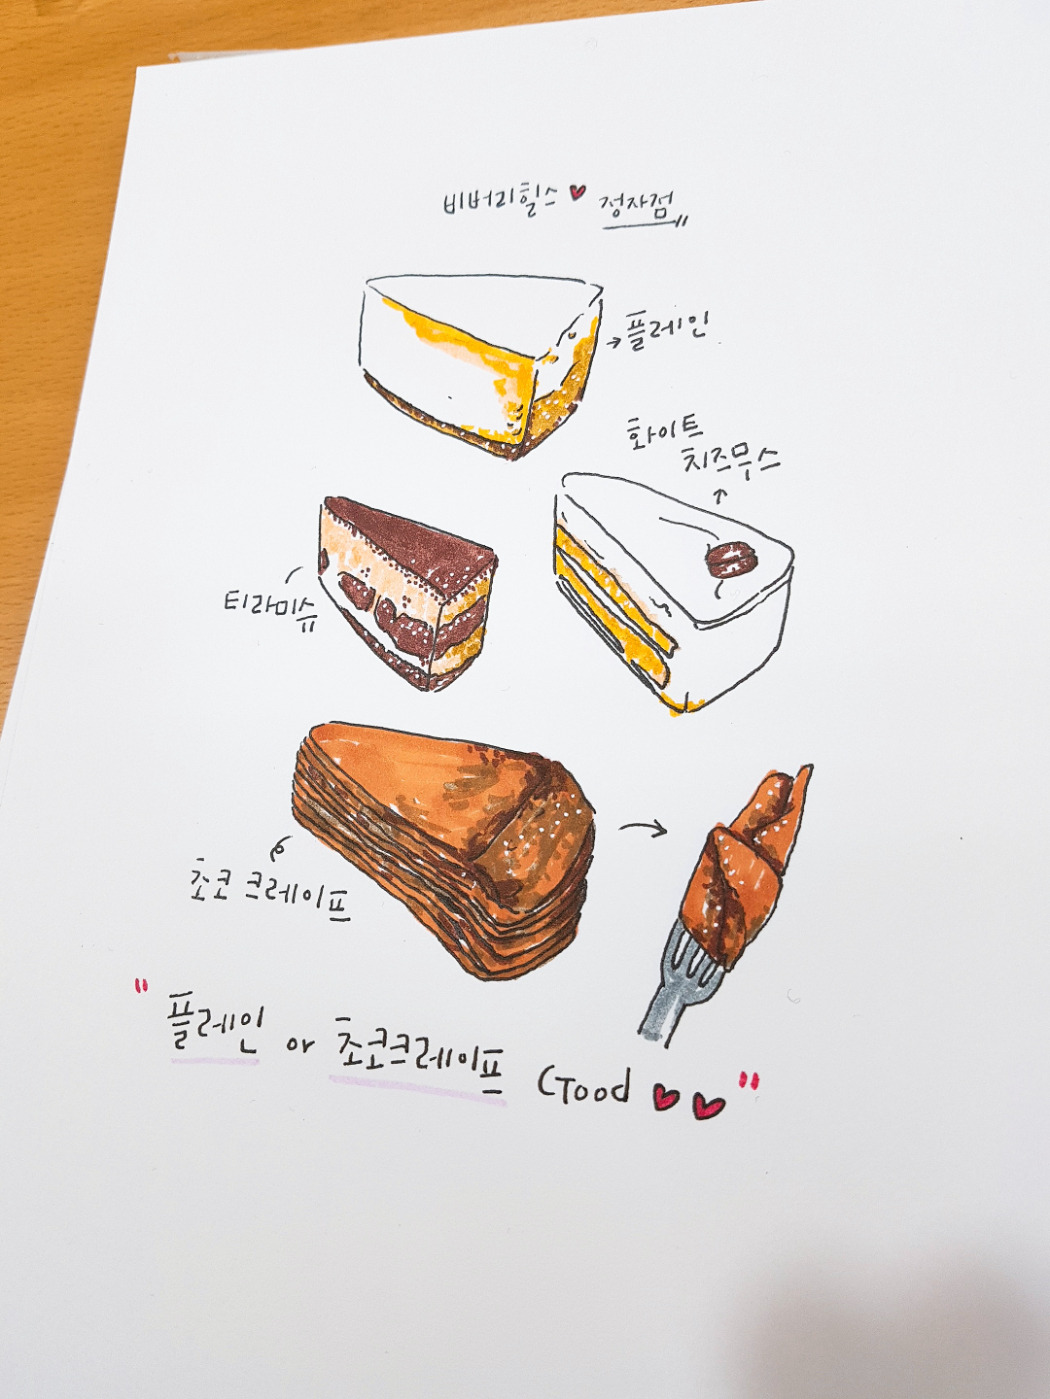 비버리힐스♥ 정자점
→플레인
화이트
치즈무스
티라미슈
초코 크레이프
"플레인 or 초코크레이프 Good ♥♥"